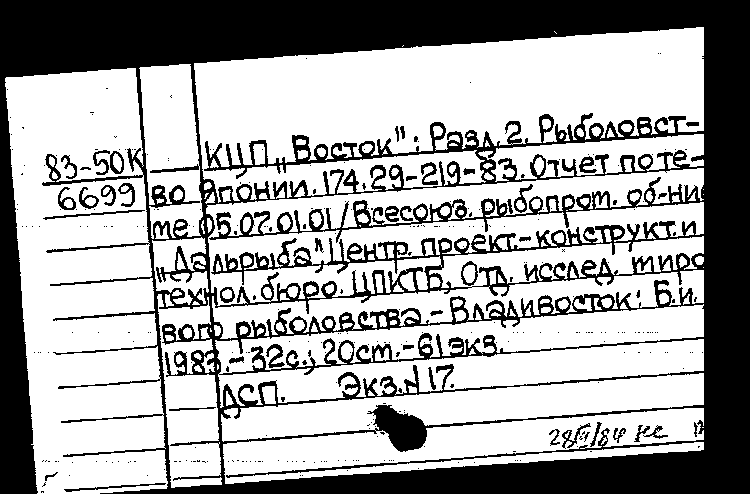 83-50К КЦП „Восток": Разд. 2. Рыболовст-
6699 во Японии. 174.29-219-83. Отчет по те-
ме 05.07.01.01/Всесоюз. рыбопром. об-ние
„Дальрыба", Центр. проект.-конструкт. и
технол. бюро. ЦПКТБ, Отд. исслед. миро
вого рыболовства.- Владивосток: Б.и.
1983.- 32с.; 20см.- 61 экз.
ДСП. Экз. N 17.